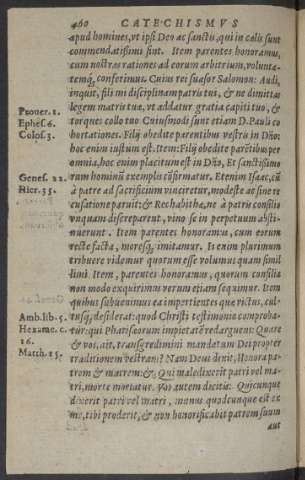 460 CATECHISMVS
apud homines, vt ipsi Deo ac sanctis, qui in cælis sunt
commendatissimi sint. Item parentes honoramus,
cum nostras rationes ad eorum arbitrium, volunta-
temq́; conferimus. Cuius rei suasor Salomon: Audi,
inquit, fili mi disciplinam patris tui, & ne dimittas
Prouer. 1. legem matris tuæ, vt addatur gratia capiti tuo, &
Ephes. 6. torques collo tuo Cuiusmodi sunt etiam D. Pauli co
Colos. 3. hortationes. Filij obedite parentibus vestris in Dño:
hoc enim iustum est. Item: Filij obedite parētibus per
omnia, hoc enim placitum est in Dño, Et sanctissimo
rum hominū exemplis cōfirmatur. Etenim Isaac, cū
Genes. 22. à patre ad sacrificium vinciretur, modeste ac sine re
Hier. 35. cusatione paruit: & Rechabitæ, ne à patris consilio
vnquam discreparent, vino se in perpetuum absti-
nuerunt. Item parentes honoramus, cum eorum
recte facta, moresq́; imitamur. Is enim plurimum
tribuere videmur quorum esse volumus quam simil
limi. Item, parentes honoramus, quorum consilia
non modo exquirimus verum etiam sequimur. Item
quibus subuenimus ea impertientes quæ victus, cul-
Amb. lib. 5. tusq́; desiderat: quod Christi testimonio comproba-
Hexame. c. tur: qui Pharisæorum impietatē redarguens: Quare
16. & vos, ait, transgredimini mandatum Dei propter
Matth. 15. traditionem vestram? Nam Deus dixit, Honora pa-
trem & matrem: &, Qui maledixerit patri vel ma-
tri, morte moriatur. Vos autem dicitis: Quicunque
dixerit patri vel matri, munus quodcunque est ex
me, tibi proderit, & non honorificabit patrem suum
aut